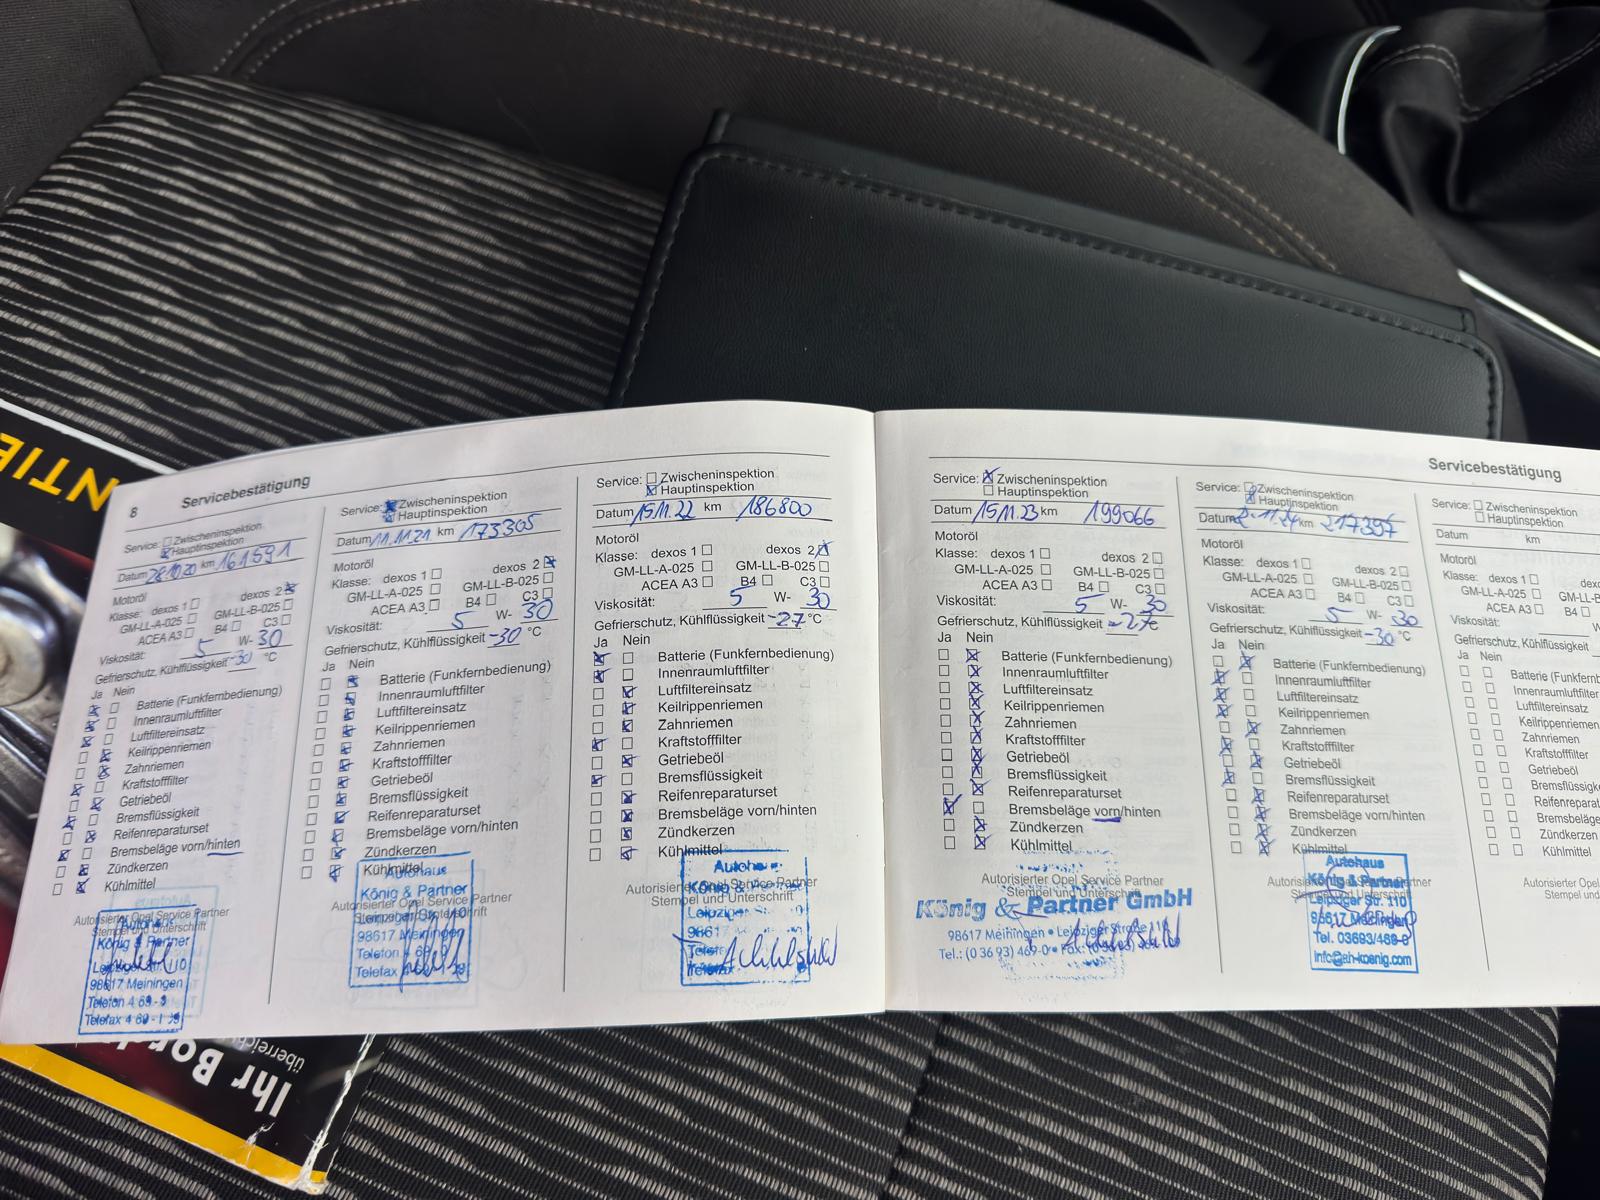 8
Servicebestätigung
Service: Zwischeninspektion
Hauptinspektion
Datum 28.10.20 km 161591
Motoröl
Klasse: dexos 1 dexos 2
GM-LL-A-025 GM-LL-B-025
ACEA A3 B4 C3
Viskosität: 5 W- 30
Gefrierschutz, Kühlflüssigkeit -30 °C
Ja Nein
Batterie (Funkfernbedienung)
Innenraumluftfilter
Luftfiltereinsatz
Keilrippenriemen
Zahnriemen
Kraftstofffilter
Getriebeöl
Bremsflüssigkeit
Reifenreparaturset
Bremsbeläge vorn/hinten
Zündkerzen
Kühlmittel
Autorisierter Opel Service Partner
Stempel und Unterschrift
Autohaus
König & Partner
Leipziger Str. 110
98617 Meiningen
Telefon 4 69 - 0
Telefax 4 69 -
Service: Zwischeninspektion
Hauptinspektion
Datum 11.11.21 km 173305
Motoröl
Klasse: dexos 1 dexos 2
GM-LL-A-025 GM-LL-B-025
ACEA A3 B4 C3
Viskosität: 5 W- 30
Gefrierschutz, Kühlflüssigkeit -30 °C
Ja Nein
Batterie (Funkfernbedienung)
Innenraumluftfilter
Luftfiltereinsatz
Keilrippenriemen
Zahnriemen
Kraftstofffilter
Getriebeöl
Bremsflüssigkeit
Reifenreparaturset
Bremsbeläge vorn/hinten
Zündkerzen
Kühlmittel
Autorisierter Opel Service Partner
Stempel und Unterschrift
Autohaus
König & Partner
Leipziger Str. 110
98617 Meiningen
Telefon 4
Telefax 4
Service: Zwischeninspektion
Hauptinspektion
Datum 15.11.22 km 186800
Motoröl
Klasse: dexos 1 dexos 2
GM-LL-A-025 GM-LL-B-025
ACEA A3 B4 C3
Viskosität: 5 W- 30
Gefrierschutz, Kühlflüssigkeit -27 °C
Ja Nein
Batterie (Funkfernbedienung)
Innenraumluftfilter
Luftfiltereinsatz
Keilrippenriemen
Zahnriemen
Kraftstofffilter
Getriebeöl
Bremsflüssigkeit
Reifenreparaturset
Bremsbeläge vorn/hinten
Zündkerzen
Kühlmittel
Autorisierter Opel Service Partner
Stempel und Unterschrift
Autohaus
König &
Leipziger
98617
Telefon
Telefax
Servicebestätigung
Service: Zwischeninspektion
Hauptinspektion
Datum 15.11.23 km 199066
Motoröl
Klasse: dexos 1 dexos 2
GM-LL-A-025 GM-LL-B-025
ACEA A3 B4 C3
Viskosität: 5 W- 30
Gefrierschutz, Kühlflüssigkeit -27 °C
Ja Nein
Batterie (Funkfernbedienung)
Innenraumluftfilter
Luftfiltereinsatz
Keilrippenriemen
Zahnriemen
Kraftstofffilter
Getriebeöl
Bremsflüssigkeit
Reifenreparaturset
Bremsbeläge vorn/hinten
Zündkerzen
Kühlmittel
Autorisierter Opel Service Partner
Stempel und Unterschrift
König & Partner GmbH
98617 Meiningen • Leipziger Straße 110
Tel.: (0 36 93) 469-0 • Fax:
Service: Zwischeninspektion
Hauptinspektion
Datum 2.11.24 km 217397
Motoröl
Klasse: dexos 1 dexos 2
GM-LL-A-025 GM-LL-B-025
ACEA A3 B4 C3
Viskosität: 5 W- 30
Gefrierschutz, Kühlflüssigkeit -30 °C
Ja Nein
Batterie (Funkfernbedienung)
Innenraumluftfilter
Luftfiltereinsatz
Keilrippenriemen
Zahnriemen
Kraftstofffilter
Getriebeöl
Bremsflüssigkeit
Reifenreparaturset
Bremsbeläge vorn/hinten
Zündkerzen
Kühlmittel
Autorisierter Opel Service Partner
Stempel und Unterschrift
Autohaus
König & Partner
Leipziger Str. 110
98617 Meiningen
Tel. 03693/469-0
info@ah-koenig.com
Service: Zwischeninspektion
Hauptinspektion
Datum km
Motoröl
Klasse: dexos 1
GM-LL-A-025 GM-LL-B
ACEA A3 B4
Viskosität: W
Gefrierschutz, Kühlflüssigkeit
Ja Nein
Batterie (Funkfernb
Innenraumluftfilter
Luftfiltereinsatz
Keilrippenriemen
Zahnriemen
Kraftstofffilter
Getriebeöl
Bremsflüssigke
Reifenreparat
Bremsbeläge
Zündkerzen
Kühlmittel
Autorisierter Opel
Stempel und
NTIE
Ihr Bord
überreich